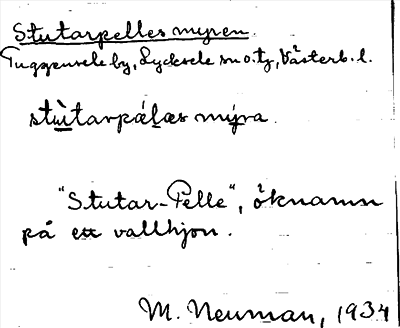 Stutarpelles myren.
Tuggensele by, Lycksele sn o. tg, Västerb. l.
stùtarpálæs mýra
"Stutar-Pelle", öknamn
på ett vallhjon.
M. Neuman, 1934